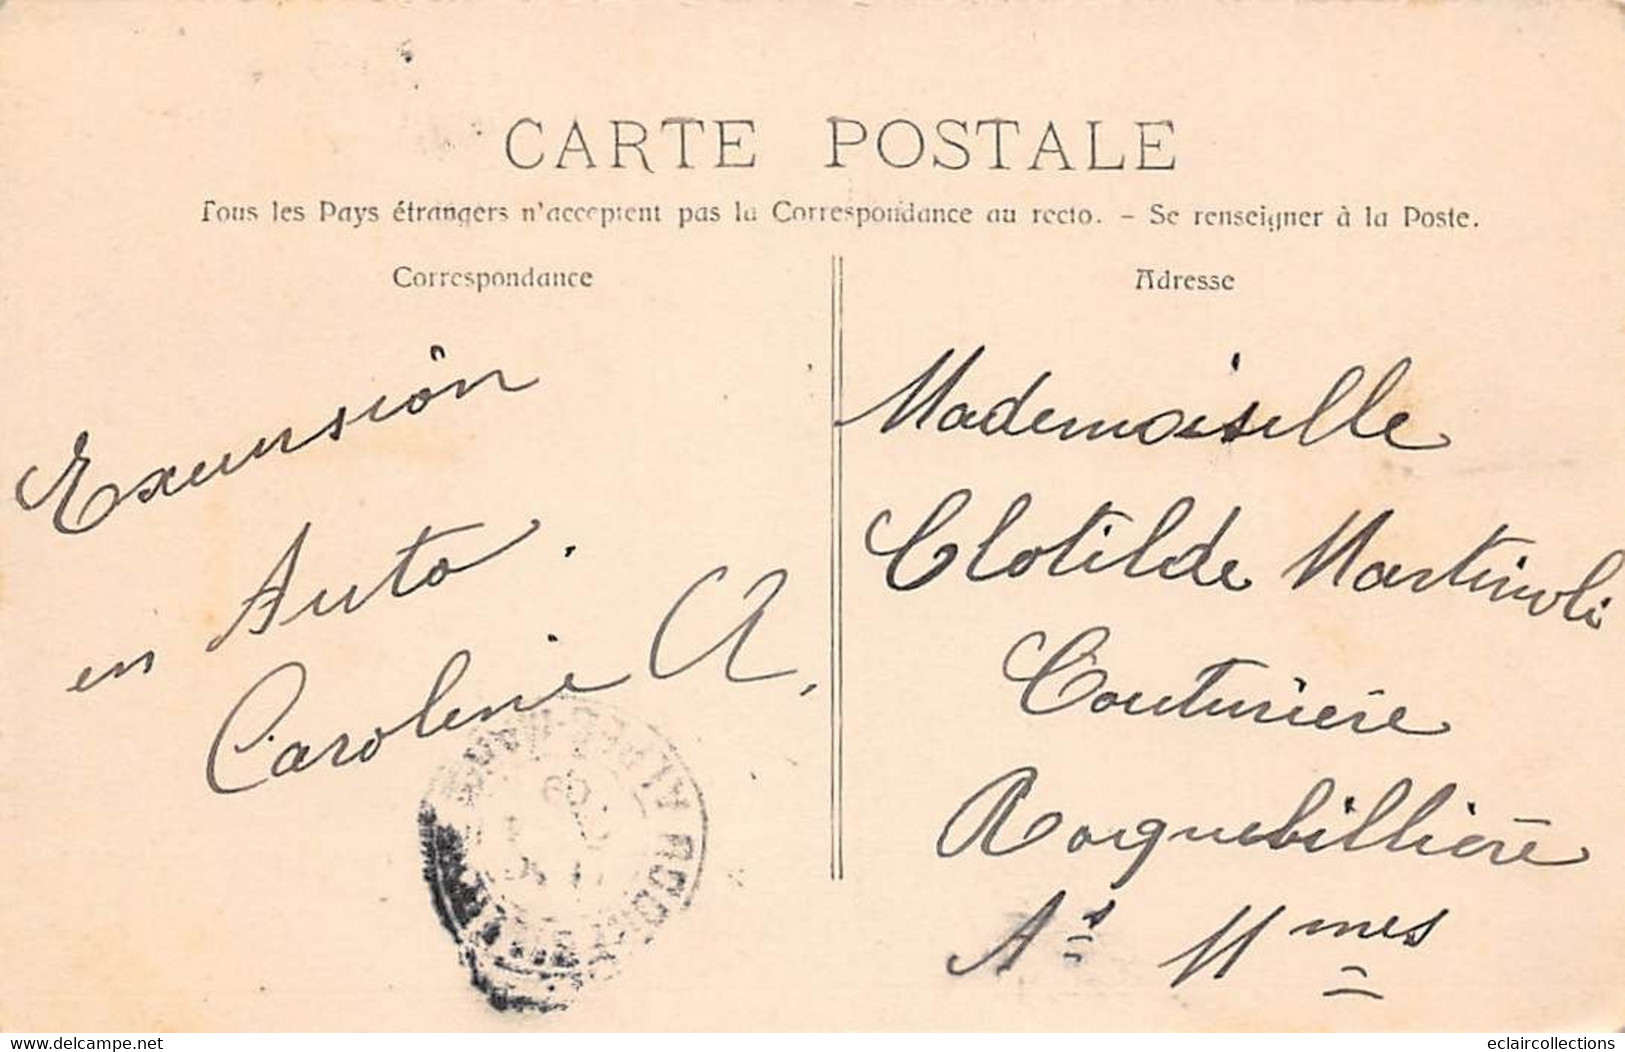 CARTE POSTALE
Tous les Pays étrangers n'acceptent pas la Correspondance au recto. – Se renseigner à la Poste.
Correspondance
Excursion
en Auto.
Caroline A.
Adresse
Mademoiselle
Clotilde Martinoli
Couturière
Roquebillière
A^s M^mes
ALPES-MAR
09
www.delcampe.net
eclaircollections